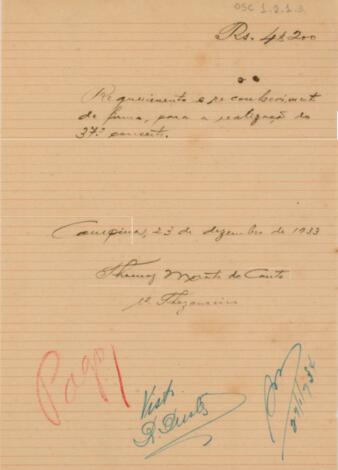 OSC 1.2.1.3
Rs. 4$200
Requerimento e reconheciment
de firma, para a realização do
37º concerto.
Campinas, 23 de dezembro de 1933
Thomaz do Canto
1º Thezoureiro
Pago
Visto